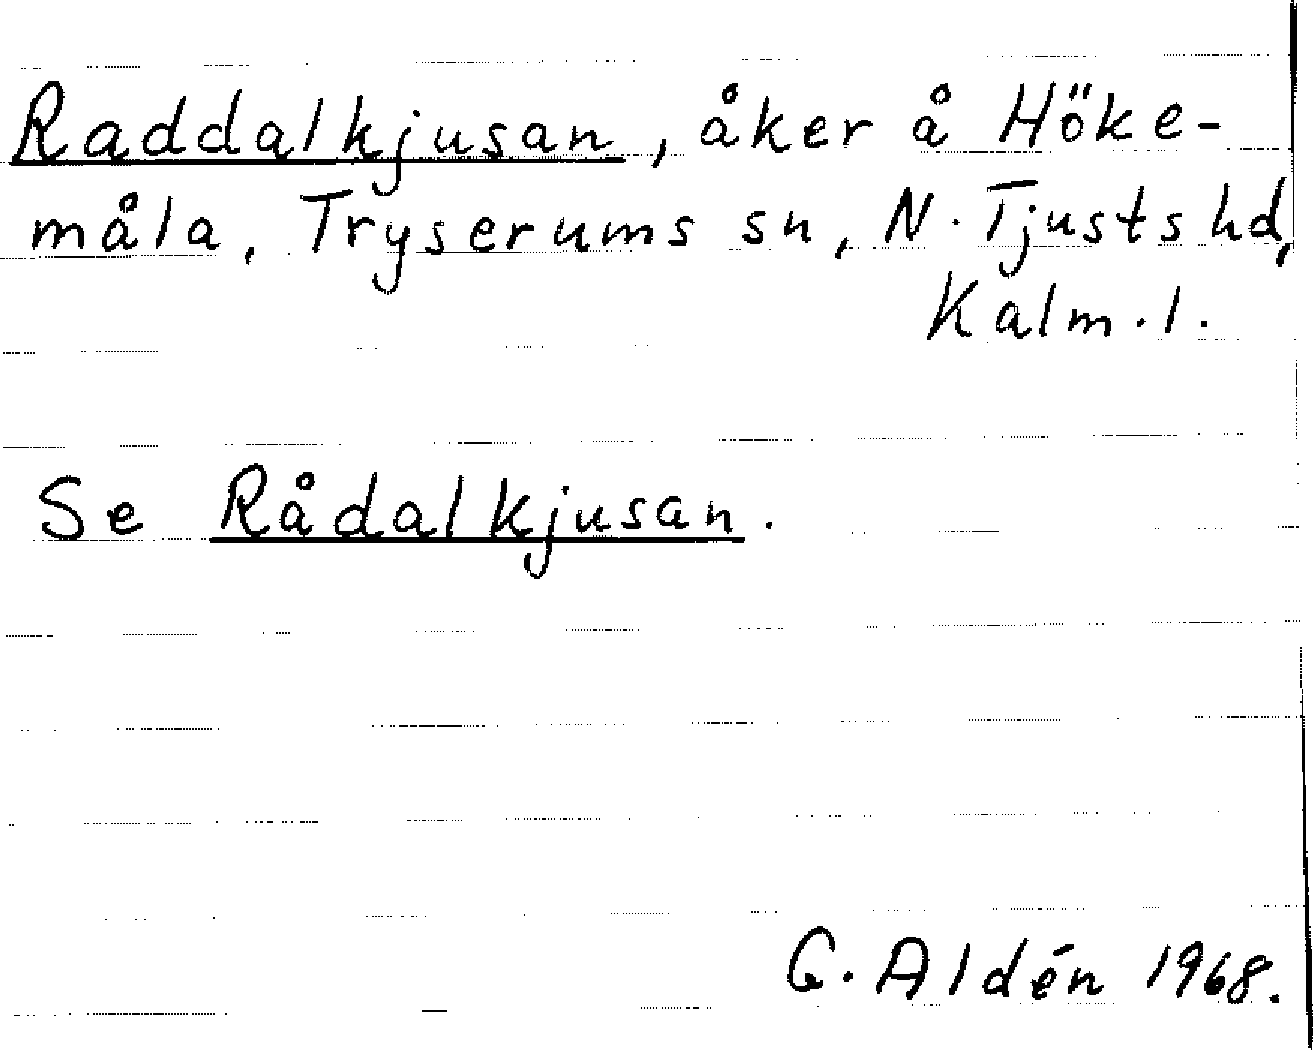 Raddalkjusan, åker å Höke-
måla, Tryserums sn, N. Tjusts hd,
Kalm. l.
Se Rådalkjusan.
G. Aldén 1968.